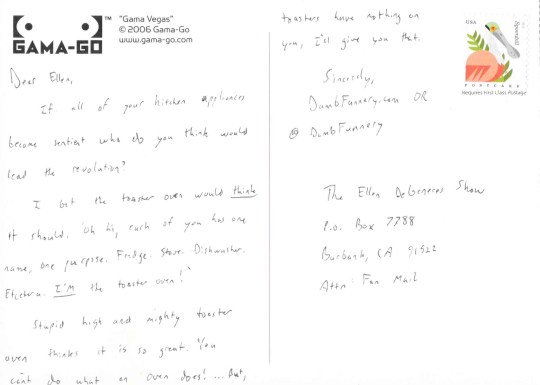 "Gama Vegas"
© 2006 Gama-Go
www.gama-go.com
GAMA-GO
Dear Ellen,
If all of your kitchen appliances
become sentient who do you think would
lead the revolution?
I bet the toaster oven would think
it should. "Oh hi, each of you has one
name, one purpose. Fridge. Stove. Dishwasher.
Etcetera. I'M the toaster oven!"
Stupid high and mighty toaster
oven thinks it is so great. You
can't do what an oven does! ... But,
toasters have nothing on
you, I'll give you that.
Sincerely,
DumbFunnery.com OR
@ DumbFunnery
USA
Spoonbill
POSTCARD
Requires First Class Postage
The Ellen DeGeneres Show
P.O. Box 7788
Burbank, CA 91522
Attn: Fan Mail